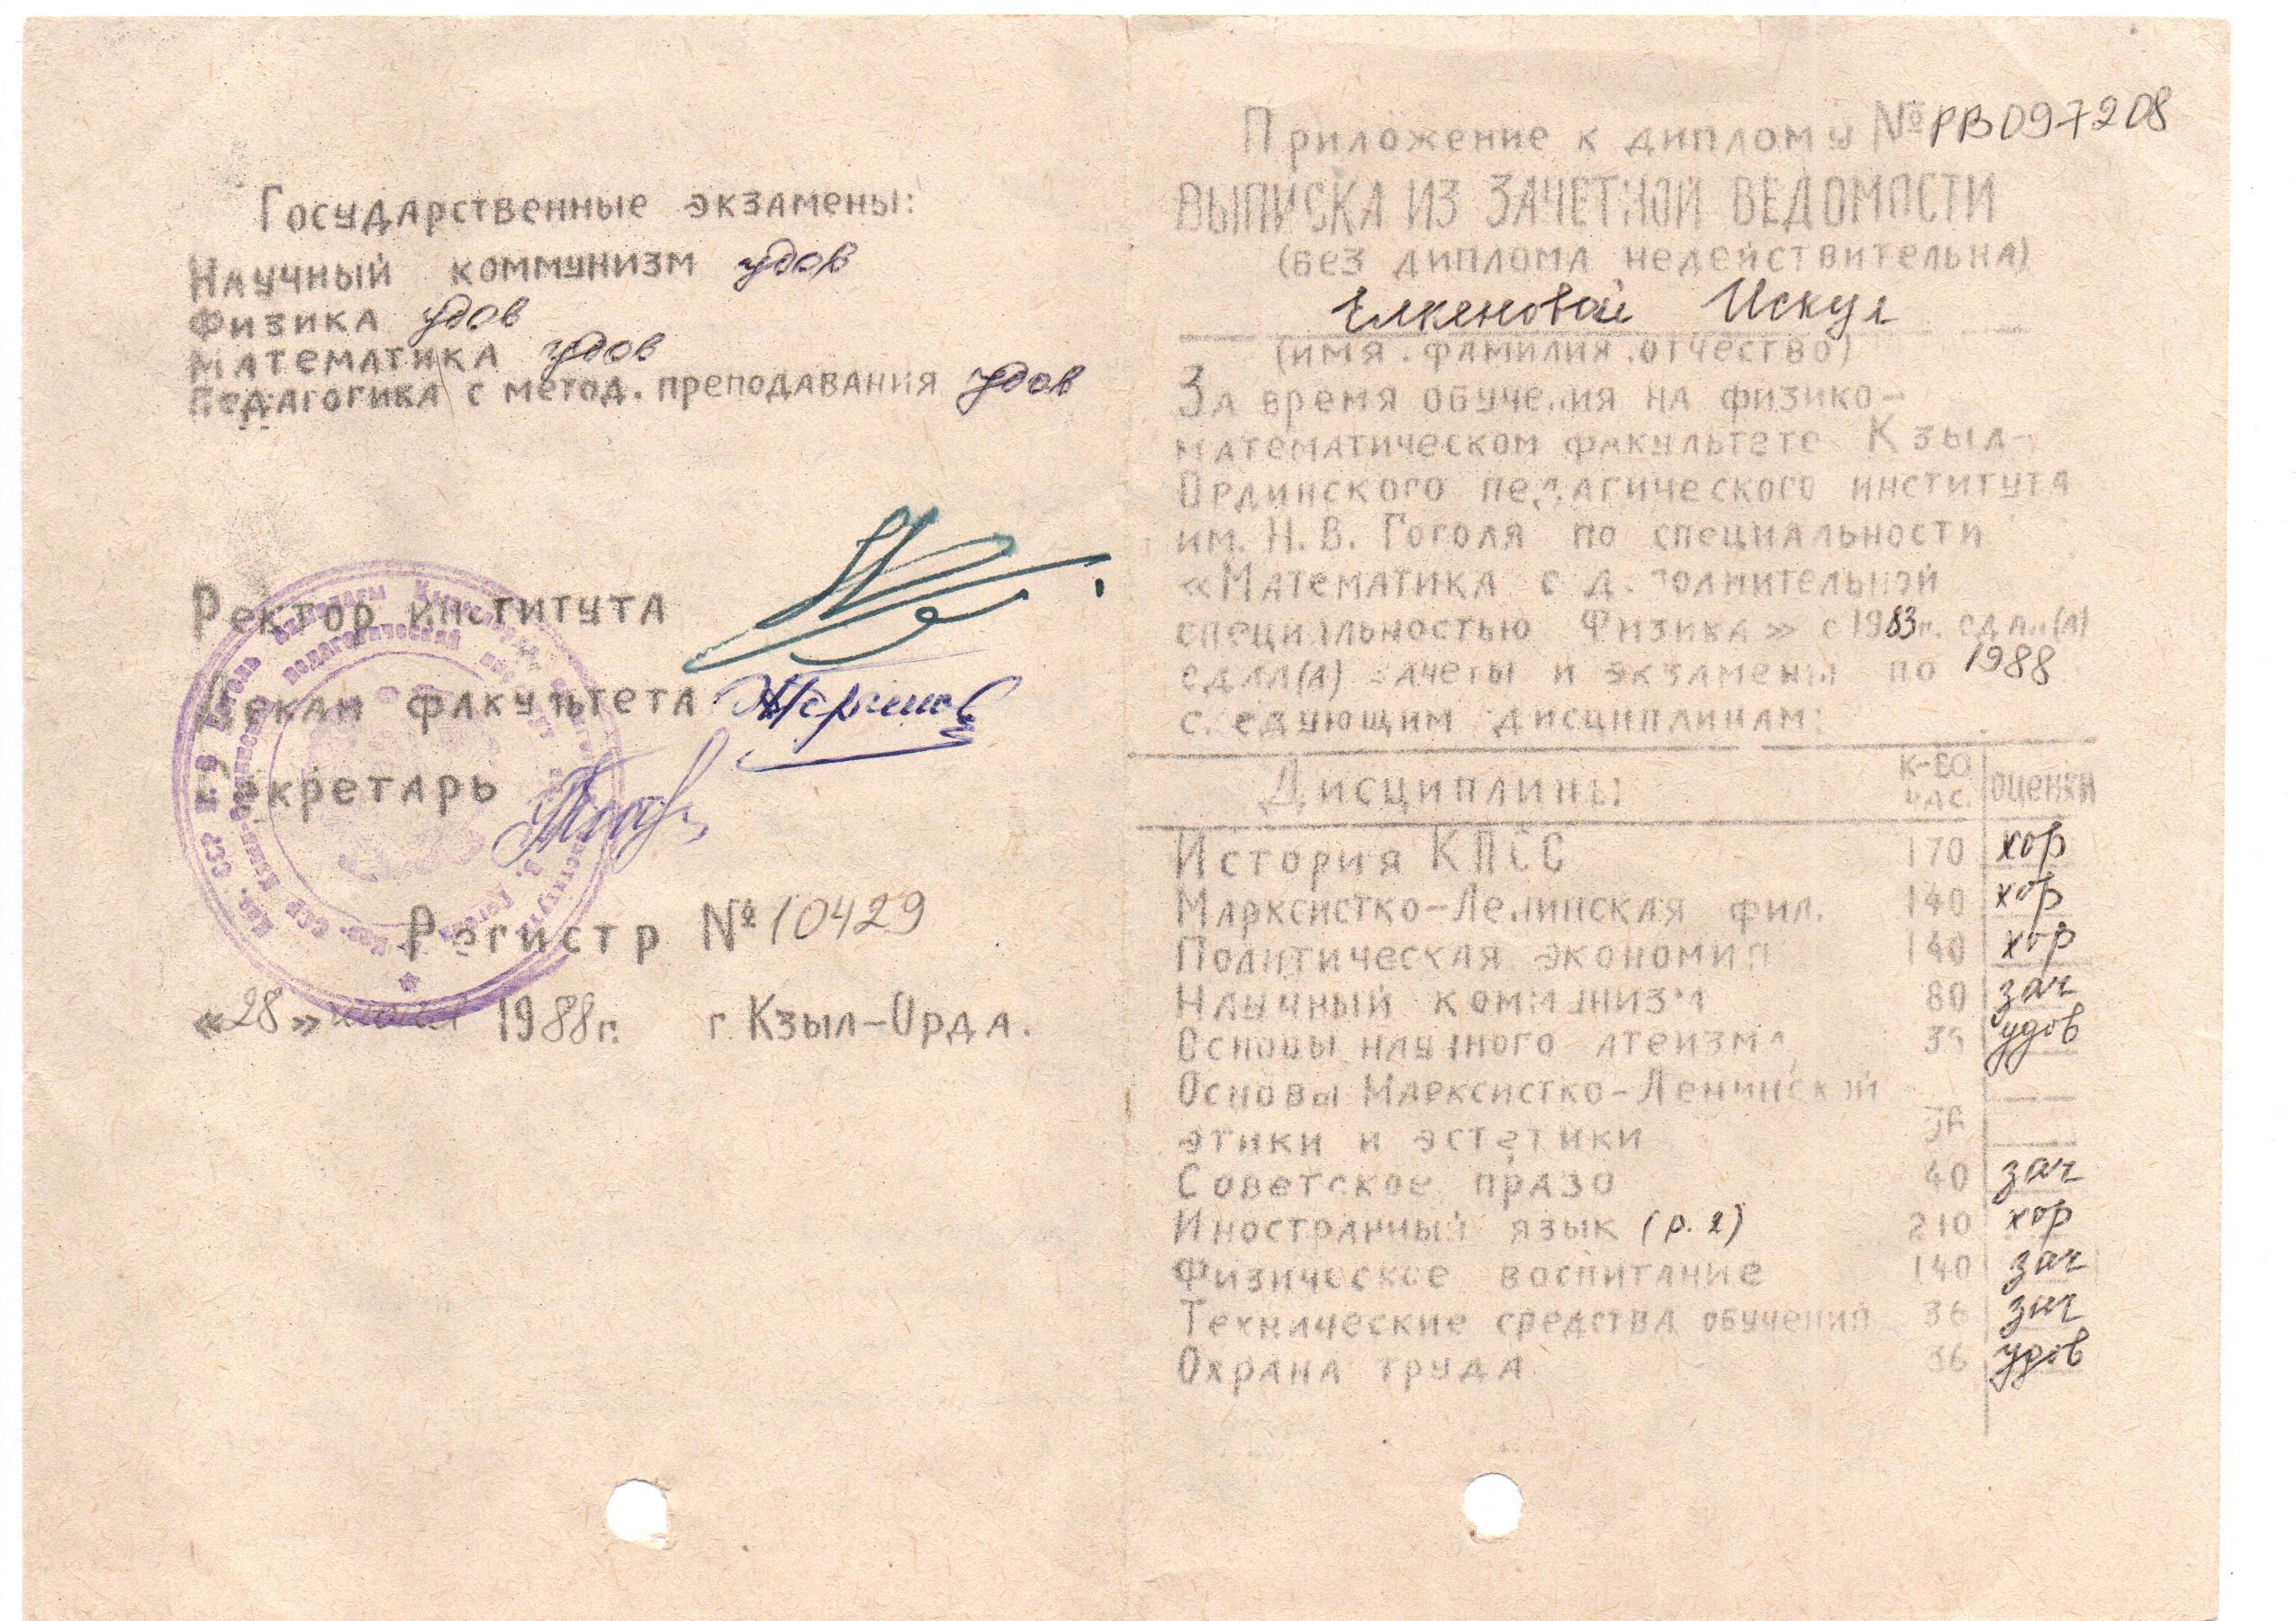 Государственные экзамены:
Научный коммунизм удов
Физика удов
Математика удов
Педагогика с метод. преподавания удов
Ректор института
Декан факультета
Секретарь
Регистр № 10429
«28» июня 1988 г. г. Кзыл-Орда.
Приложение к диплому № РВ 097208
ВЫПИСКА ИЗ ЗАЧЕТНОЙ ВЕДОМОСТИ
(без диплома недействительна)
Елкеновой Искул
(имя. фамилия. отчество)
За время обучения на физико-
математическом факультете Кзыл-
Ординского педагического института
им. Н. В. Гоголя по специальности
«Математика с дополнительной
специальностью Физика» с 1983 г. сдал(а)
сдал(а) зачеты и экзамены по 1988
следующим дисциплинам:
Дисциплины к-во час. оценки
История КПСС 170 хор
Марксистко-Ленинская фил. 140 хор
Политическая экономия 140 хор
Научный коммунизм 80 зач
Основы научного атеизма удов
Основы Марксистко-Ленинской —
этики и эстетики —
Советское право 40 зач
Иностранный язык (р. 2) 210 хор
Физическое воспитание 140 зач
Технические средства обучения 36 зач
Охрана труда 36 удов